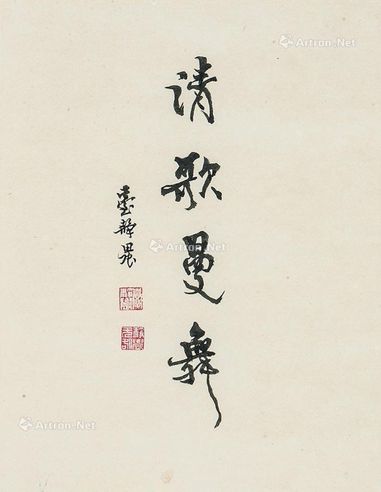 清歌曼舞
臺靜農
Artron.Net
Artron.Net
Artron.Net
Artron.Net